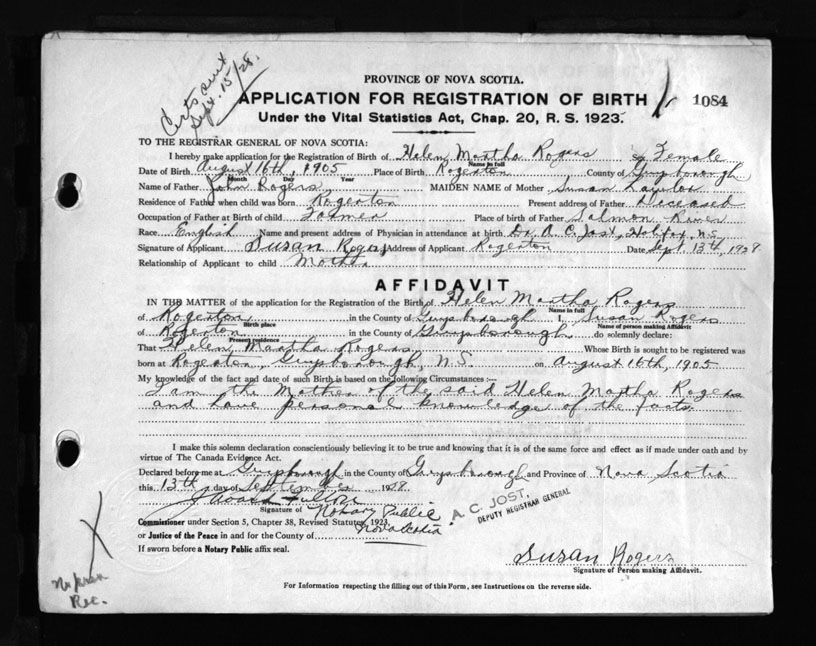 Certs sent
Sept. 15/28.
PROVINCE OF NOVA SCOTIA.
APPLICATION FOR REGISTRATION OF BIRTH 1084
Under the Vital Statistics Act, Chap. 20, R. S. 1923.
TO THE REGISTRAR GENERAL OF NOVA SCOTIA:
I hereby make application for the Registration of Birth of Helen Martha Rogers Sex Female
Name in full
Date of Birth August 16th, 1905 Place of Birth Rogerton County of Guysborough
Month Day Year
Name of Father John Rogers MAIDEN NAME of Mother Susan
Residence of Father when child was born Rogerton Present address of Father Deceased
Occupation of Father at Birth of child Farmer Place of birth of Father Salmon River
Race English Name and present address of Physician in attendance at birth Dr. A. C. Jost, Halifax, N.S.
Signature of Applicant Susan Rogers Address of Applicant Rogerton Date Sept. 13th, 1928
Relationship of Applicant to child Mother
AFFIDAVIT
IN THE MATTER of the application for the Registration of the Birth of Helen Martha Rogers
Name in full
of Rogerton in the County of Guysborough I, Susan Rogers
Birth place Name of person making Affidavit
of Rogerton in the County of Guysborough do solemnly declare:
Present residence
That Helen Martha Rogers Whose Birth is sought to be registered was
born at Rogerton, Guysborough, N.S. on August 16th, 1905
My knowledge of the fact and date of such Birth is based on the following Circumstances:—
I am the Mother of the said Helen Martha Rogers
and have personal knowledge of the facts.
I make this solemn declaration conscientiously believing it to be true and knowing that it is of the same force and effect as if made under oath and by
virtue of The Canada Evidence Act.
Declared before me at Guysborough in the County of Guysborough and Province of Nova Scotia
this 13th day of September 1928.
Signature of Notary Public
A. C. JOST,
DEPUTY REGISTRAR GENERAL
Commissioner under Section 5, Chapter 38, Revised Statutes, 1923,
Nova Scotia
or Justice of the Peace in and for the County of
If sworn before a Notary Public affix seal.
Susan Rogers
Signature of Person making Affidavit.
Rec.
For Information respecting the filling out of this Form, see Instructions on the reverse side.